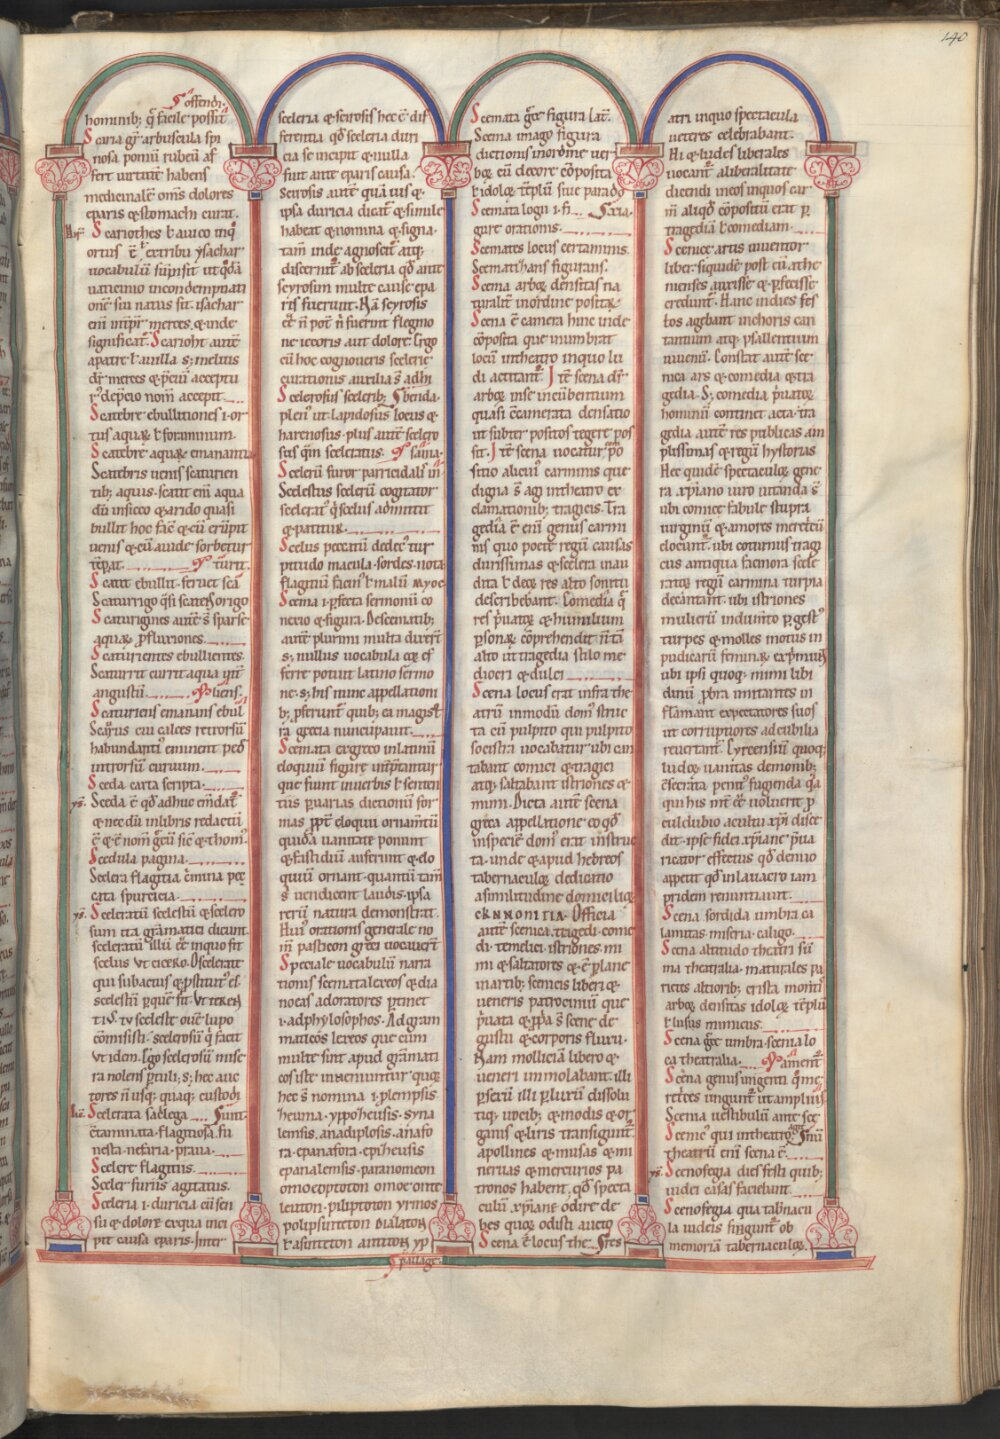 140
offendi.
hominib; q̃ facile possit
Scaria gr̃ arbuscula spi
nosa pomũ rubeũ af
fert uirtutẽ habens
medicinalẽ om̃s dolores
eparis & stomachi curat.
Scariothes ł a uico inq̊
ortus ẽ ł ex tribu ysachar
uocabulũ supsit ut q̃dã
uaticinio in condempnati
onẽ sui natus sit. isachar
eni͂ int̃p̃r merces. & inde
significat̃. Scarioht autẽ
a patre ł a uilla s; melius
dr̃ merces & p̃ciũ accepti
Scatebre ebullitiones i. or
tus aquaꝝ ł foraminum.
Scatebre aquaꝝ emanantiũ
Scatebris uenis scaturien
tib; aquis. scatit eni͂ aqua
dũ in sicco & arido quasi
bullit hoc facẽ & cũ erũpit
uenis & cũ auide sorbetur
tẽpat. turit.
Scatit ebullit. feruet
Scaturrigo q̃si scatens origo
Scaturigines autẽ s̃ sparse
aquaꝝ ꝓfluxiones.
Scaturientes ebullientes.
Scaturrit currit aqua
angustũ. liens.
Scaturiens emanans ebul
Scaurus cui calces retrorsũ
habundanti͂ eminent ped
introrsũ curuum.
Sceda carta scripta.
Sceda ẽ qd̃ adhuc em̃dat̃
& nec dũ in libris redactũ
ẽ & ẽ nom̃ grecũ sic & thom̃
Scedula pagina.
Scelera flagitia c̃mina pec
cata spurcicia.
Sceleratũ scelestũ & scelero
sum ita grãmatici dicunt.
sceleratũ illũ eẽ in quo fit
scelus. Vt cicero. O scelerate
qui subactus & ꝓstitut̃ es.
scelestũ per quẽ fit. Vt teren
tiꝰ. tu sceleste oue lupo
cõmisisti. scelerosũ q̃ facit
Vt idem. Ego scelerosũ mise
ra nolens ꝑtuli. s; hec auc
tores ñ usq; quaq; custodi
Scelerata sacilega. Sunt
c̃taminata. flagitiosa. fu
nesta. nefaria. praua.
Scelere flagitiis.
Sceler furiis agitatus.
Sceleria i. duricia cũ sen
su & dolore ex qua inci
pit causa eparis. Inter
sceleria & scirosis hec ẽ dif
ferentia qd̃ sceleria duri
cia se incipit & nulla
fuit ante eparis causa.
Scirosis autẽ quã uis &
ipsa duricia dicat̃ & simile
habeat & nomina & signa.
tam̃ inde agnoscet̃ atq;
discernit̃ ab sceleria qd̃ ante
scyrosim multe cause epa
ris fuerunt. Nã scyrosis
eẽ ñ pot̃ ñ fuerint flegmo
ne iecoris aut dolore. Ergo
cũ hoc cognoueris scelerie
curationis auxilia s̃ adhi
Scelerosus sceleribꝫ. benda.
plenꝰ ut lapidosus locus &
harenosus. plus autẽ scelero
sus q̃m sceleratus.
Scelerũ furor parricidali͂
Scelestus scelerũ cogitator
scelerat̃ q̃ scelus admittit
& patitur.
Scelus peccatũ dedecꝰ tur
pitudo macula. sordes. nota
flagitiũ facinꝰ ł malũ
Scema i. ꝑfecta sermonũ co
nexio & figura. De scematib;
autẽ plurimi multa dixert̃
s; nullus uocabula eoꝝ ef
ferre potuit latino sermo
ne. s; his nunc appellationi
b; p̃ferunt̃ quib; ea magist̃
ra grecia nuncupauit.
Scemata ex greco in latinũ
eloquiũ figure int̃p̃tantur
que fiunt in uerbis ł senten
tiis ꝑ uarias dictionũ for
mas ppt̃ eloquii ornam̃tũ
quidã uanitate ponunt
& fastidiũ auferunt & elo
quiũ ornant. quantũ tam̃
s̃ uendicent laudis. ipsa
rerũ natura demonstrat.
Huiꝰ orationis generale no
m̃ pasticon greci uocauer̃t
Speciale uocabulũ narra
tionis scematalexeos & dia
noeas adoratores ꝑtinet
i. ad phylosophos. Ad gram
maticos lexeos que cum
multe sint apud grãmati
cos iste inueniuntur quoꝝ
hec s̃ nomina i. plempsis
heuma. yppoheusis. syna
lemsis. anadiplosis. anafo
ra. epanafora. epiheusis
epanalensis. paranomeon
omoeoptoton omoe onte
leuton. poliptoton yrinos
polipsinteton dialaton
ł asinteton yp
pallage
Scemata gr̃ce figura lat̃.
Scema imago figura
dictionis in ordine uer
boꝝ cũ decore cõposita
Scemata logii i. fi
gure orationis.
Scemates locus certaminis.
Scematihans figurans.
Scema arboꝝ densitas na
turalit̃ in ordine positaꝝ
Scena ẽ camera hinc inde
cõposita que inumbrat
locũ in theatro in quo lu
di actitant̃. Itẽ scena dr̃
arboꝝ in se incũbentium
quasi c̃camerata densatio
ut subter positos tegere pos
sit. Itẽ scena uocatur
sitio alicuiꝰ carminis que
digna s̃ agi in theatro ex
clamationib; tragicis. Tra
gedia ẽ eni͂ genus carmi
nis quo poete regũ casus
durissimas & scelera inau
dita ł deoꝝ res alto sonitu
describebant. Comedia q̃
res p̃uataꝝ & humilium
ꝑsonaꝝ cõprehendit ñ tã
alto ut tragedia stilo me
diocri & dulci.
Scena locus erat infra the
atrũ in modũ domꝰ struc
ta cũ pulpito qui pulpitꝰ
orcistra uocabatur ubi can
tabant comici & tragici
atq; saltabant istriones &
mimi. Dicta autẽ scena
greca appellatione eo qd̃
in speciẽ domꝰ erat instruc
ta. unde & apud hebreos
tabernaculoꝝ dedicatio
a similitudine domicilioꝝ
Officia
autẽ scenica. tragedi. come
di. temelici. istriones. mi
mi & saltatores & ẽ plane
in artib; scenicis liberi &
ueneris patrocinium que
p̃uata & ꝓp̃a s̃ scene de
gustu & corporis fluxu.
Nam molliciam libero &
ueneri immolabant. illi
ꝑ sexũ illi ꝑ luxũ dissolu
tiq; uocib; & modis & or
ganis & liris transigunt̃
apollines & musas & mi
neruas & mercurios pa
tronos habent. qd̃ specta
culũ xp̃iane odire de
bes quoꝝ odisti auctores
Scena ẽ locus the
atri in quo spectacula
ueteres celebrabant.
Hi & ludes liberales
uocant̃ a liberalitate
dicendi in eos in quos car
m̃ aliqd̃ cõpositũ erat ꝑ
tragediã ł comediam.
Scenice artis inuentor
liber. siquidẽ post eũ athe
nienses auxisse & ꝑfecisse
credunt̃. Hanc in dies fes
tos agebant in choris can
tantium atq; psallentium
iuuenũ. Constat autẽ sce
nica ars & comedia & tra
gedia. S; comedia p̃uatoꝝ
hominũ continet acta. tra
gedia autẽ res publicas am
plissimas & regũ hystorias
Hec quidẽ spectaculoꝝ gene
ra xp̃iano uiro uitanda s̃
ubi comice fabule stupra
uirginũ & amores meretricũ
elocunt̃. ubi coturnus tragi
cus antiqua facinora scele
ratoꝝ regũ carmina turpia
decantant̃. ubi istriones
mulierũ induunto ꝑ gestꝰ
turpes & molles motus in
pudicarũ feminaꝝ exp̃mũt
ubi ipsi quoq; mimi libi
dinũ ꝓbra imitantes in
flamant expectatores suos
ut corruptores ad cubilia
reuertant̃. Cyrcensiũ quoq;
ludoꝝ uanitas demonib;
c̃secrata penitꝰ fugienda
qui his int̃ eẽ uoluerit p̃
cul dubio a cultu xp̃i disce
dit. ipse fidei xp̃iane p̃ua
ricator effectus qd̃ denuo
appetit qd̃ in lauacro iam
pridem renuntiauit.
Scena sordida umbra ca
lamitas. miseria. caligo.
Scena altitudo theatri sũ
ma theatralia. maturales pa
rietes altiorib; crista montiũ
arboꝝ densitas idoloꝝ templũ
ł lusus mimicus.
Scena gr̃ce umbra. scenia lo
ca theatralia.
Scẽna genus ungenti
retrices ungunt̃ ut amplius
Scema uestibulũ ante
Scenicꝰ qui in theatro
theatrũ eni͂ scena ẽ.
Scenofegia dies festi quib;
iudei casas faciebant.
Scenofegia qua tab̃nacu
la iudeis finguntꝰ ob
memoriã tabernaculoꝝ.